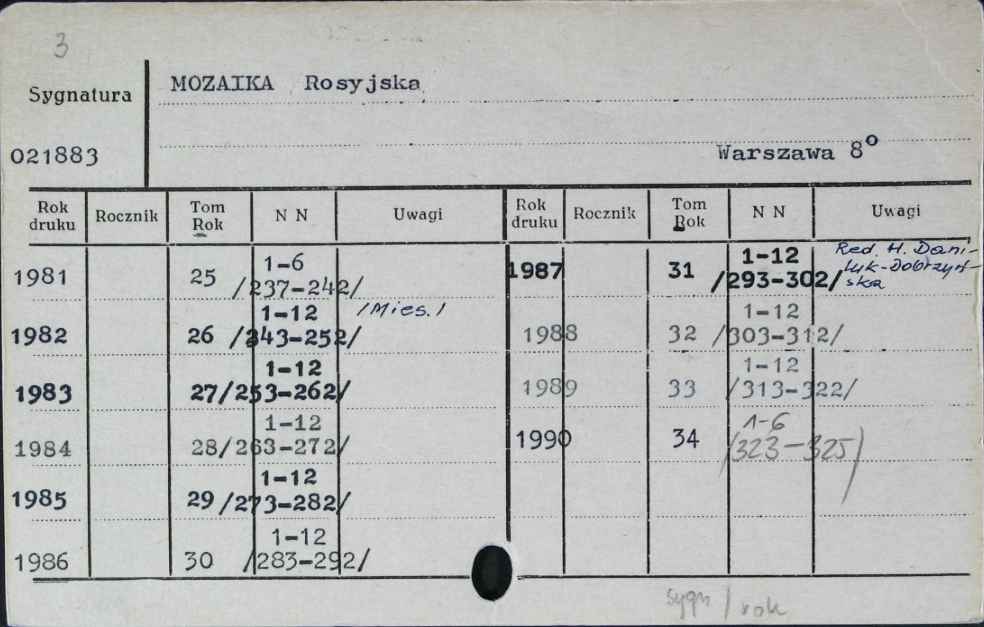 3
Sygnatura
MOZAIKA Rosyjska
021883
Warszawa 8º
Rok druku Rocznik Tom Rok N N Uwagi Rok druku Rocznik Tom Rok N N Uwagi
1981 25 1-6 /237-242/
1982 26 1-12 /243-252/ /Mies./
1983 27 1-12 /253-262/
1984 28 1-12 /263-272/
1985 29 1-12 /273-282/
1986 30 1-12 /283-292/
1987 31 1-12 /293-302/ Red. H. Dani-
luk-Dobrzyń-
ska
1988 32 1-12 /303-312/
1989 33 1-12 /313-322/
1990 34 1-6 /323-325/
sygn / rok